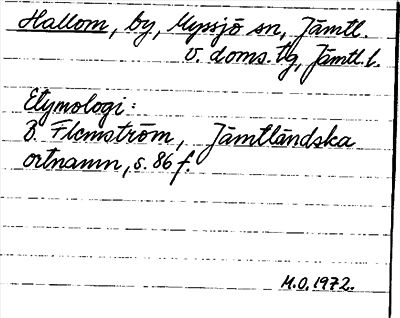 Hallom, by, Myssjö sn, Jämtl.
v. doms. tg, Jämtl. l.
Etymologi:
B. Flemström, Jämtländska
ortnamn, s. 86 f.
M.O. 1972.